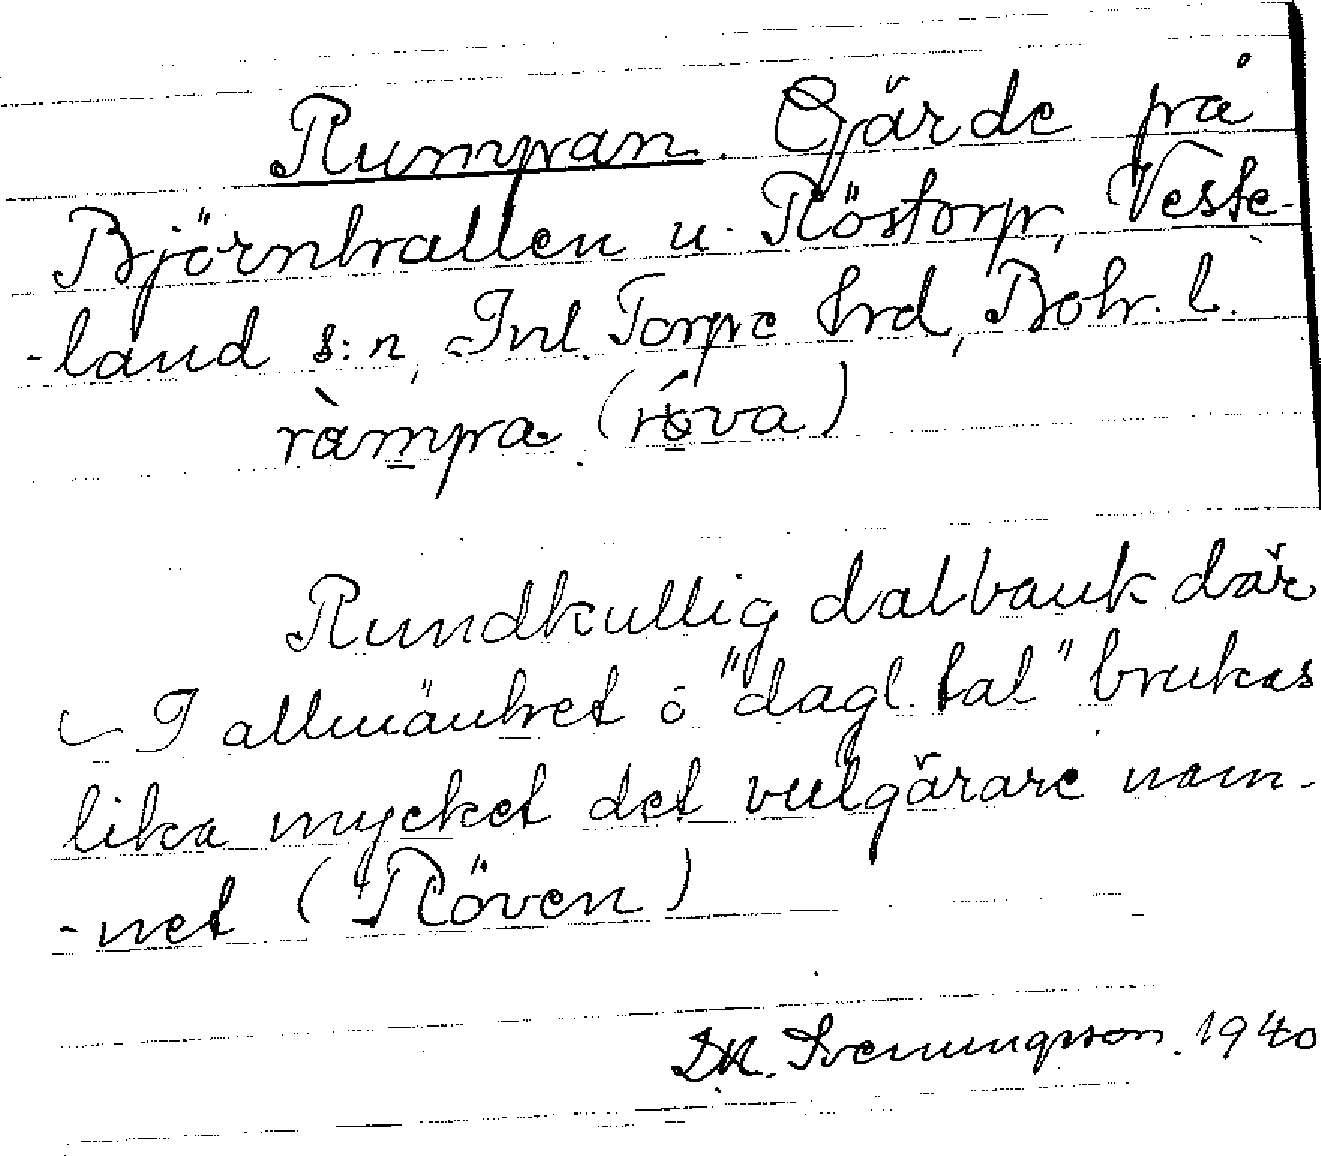 Rumpan. Gärde på
Björnhallen u. Röstorp, Veste-
-land s:n, Inl. Torpe hrd, Boh. l.
ràmpa. (róva)
Rundkullig dalbank där
I allmänhet ö "dagl. tal" brukas
lika mycket det vulgärare nam-
-net (Röven)
Svenungson. 1940